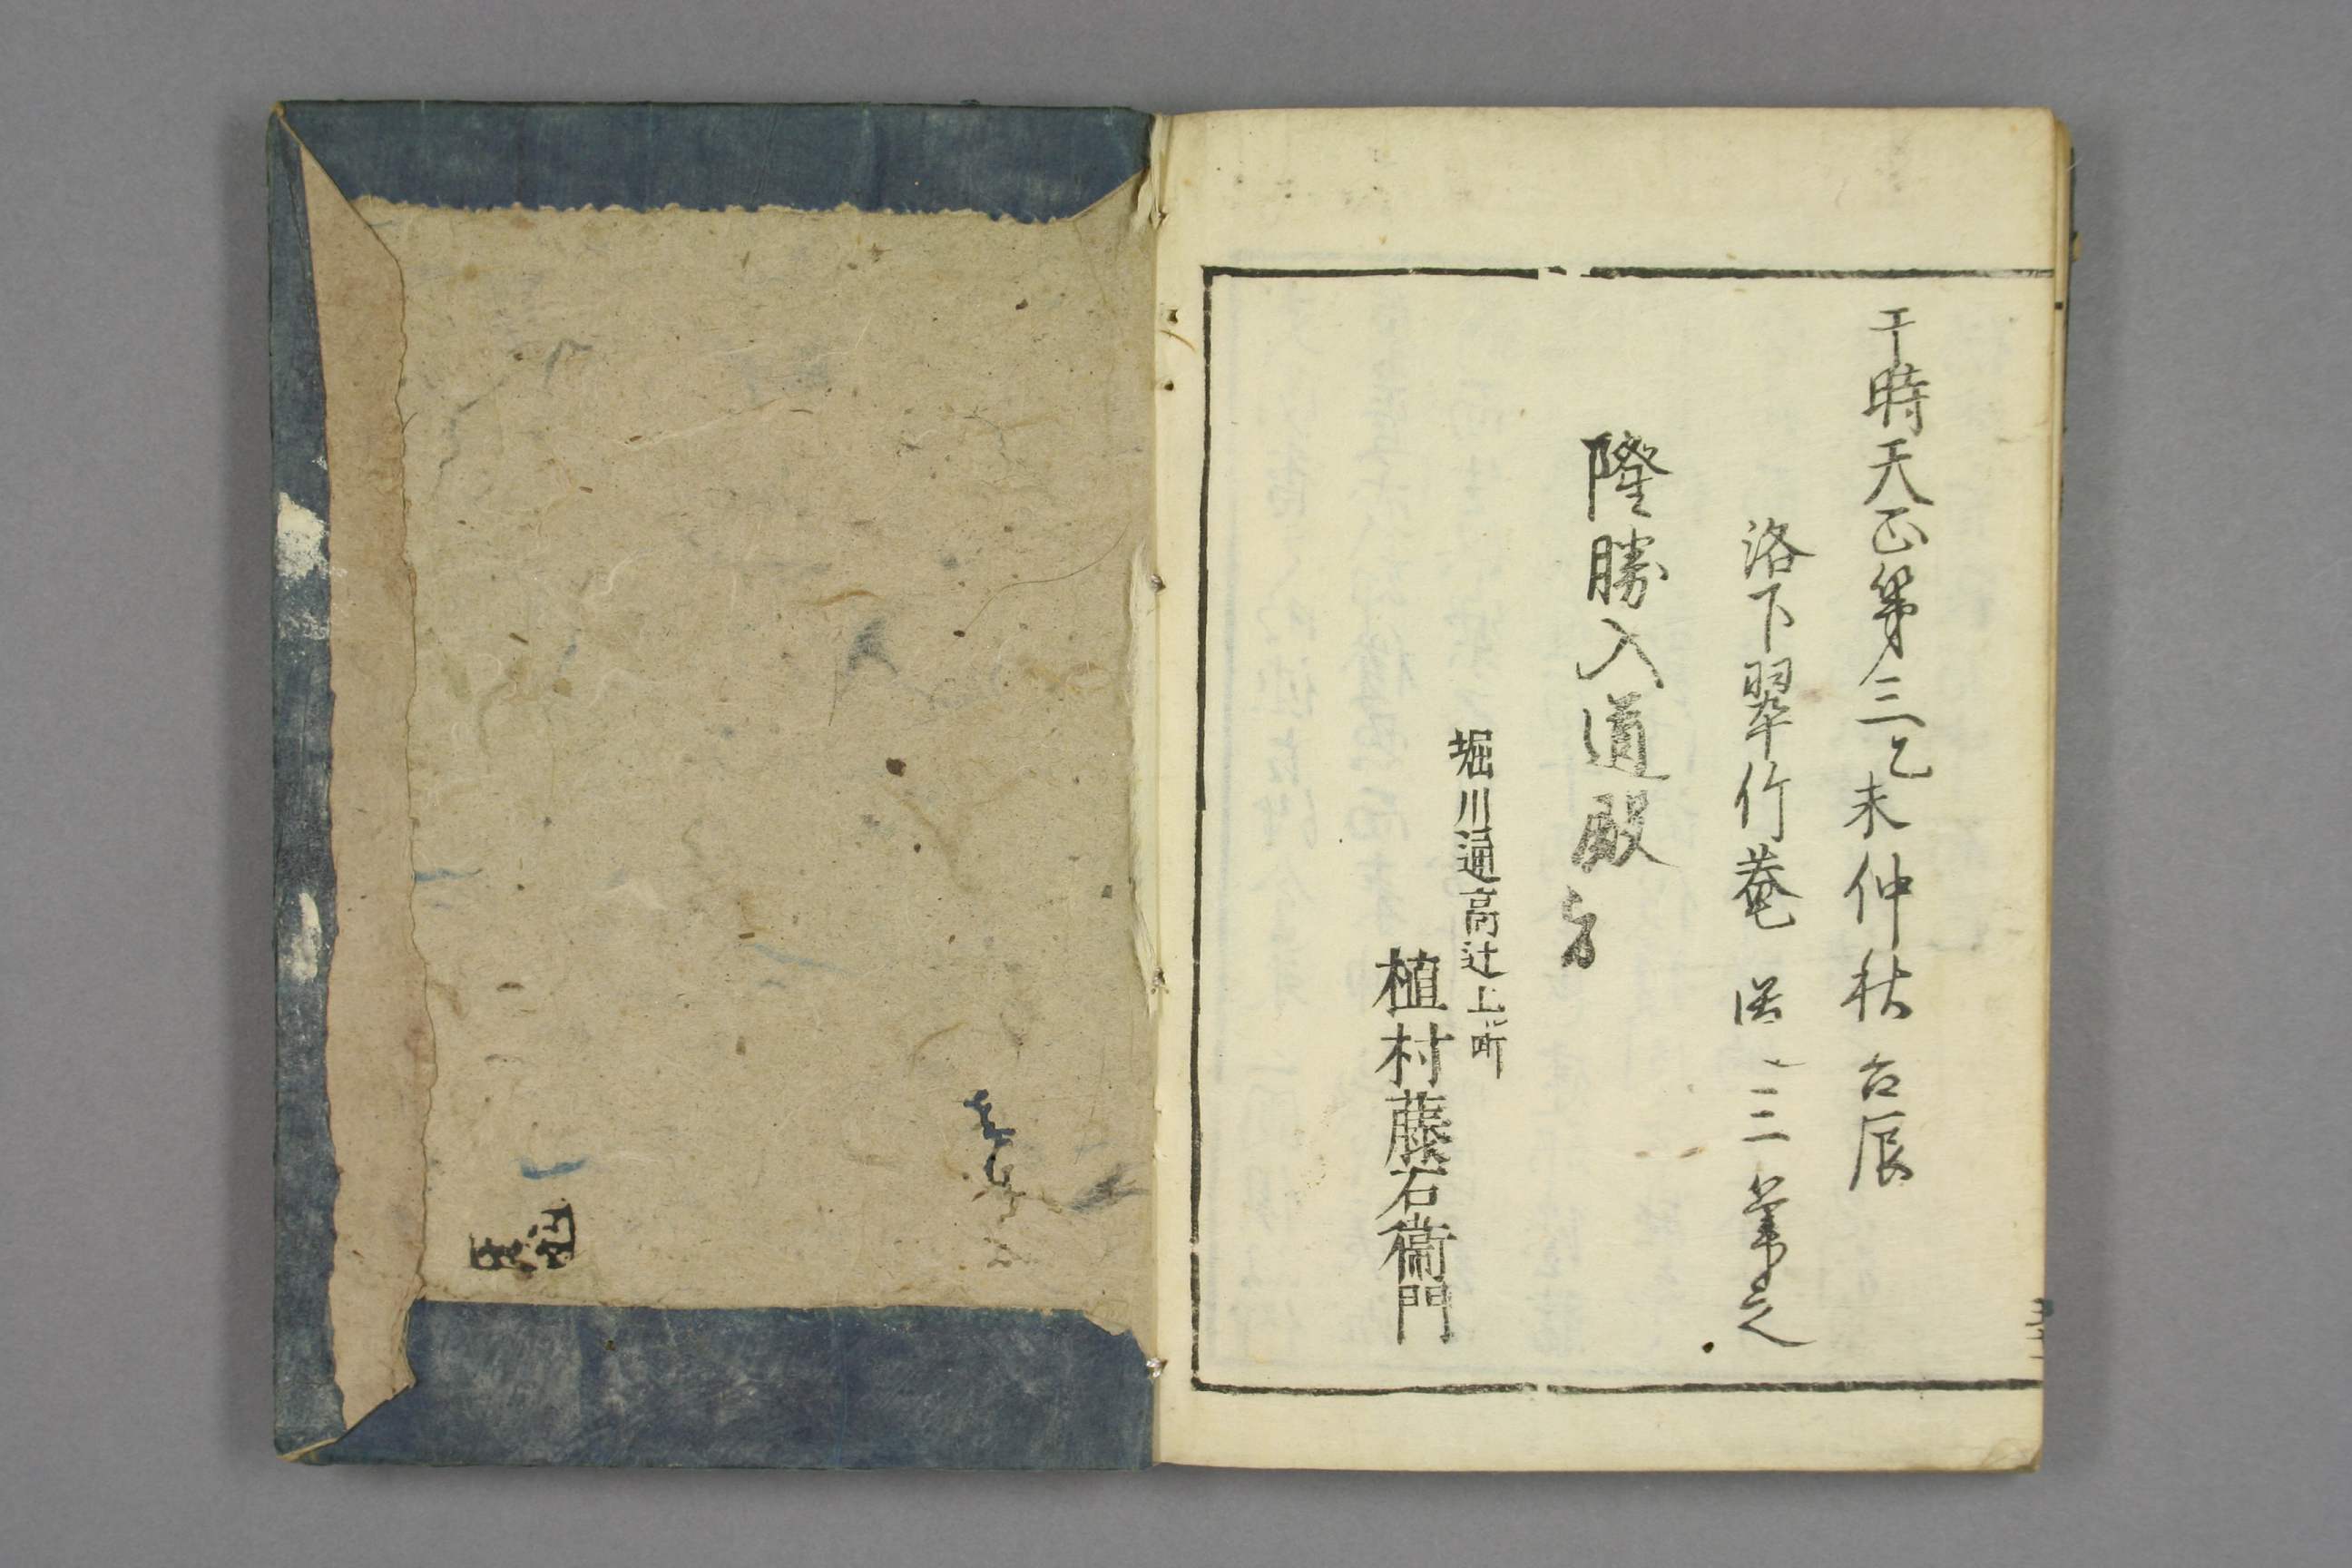 于時天正第三乙未仲秋吉辰
洛下翠竹菴 道三筆之
隆勝入道殿
堀川通高辻上ル町
植村藤右衛門